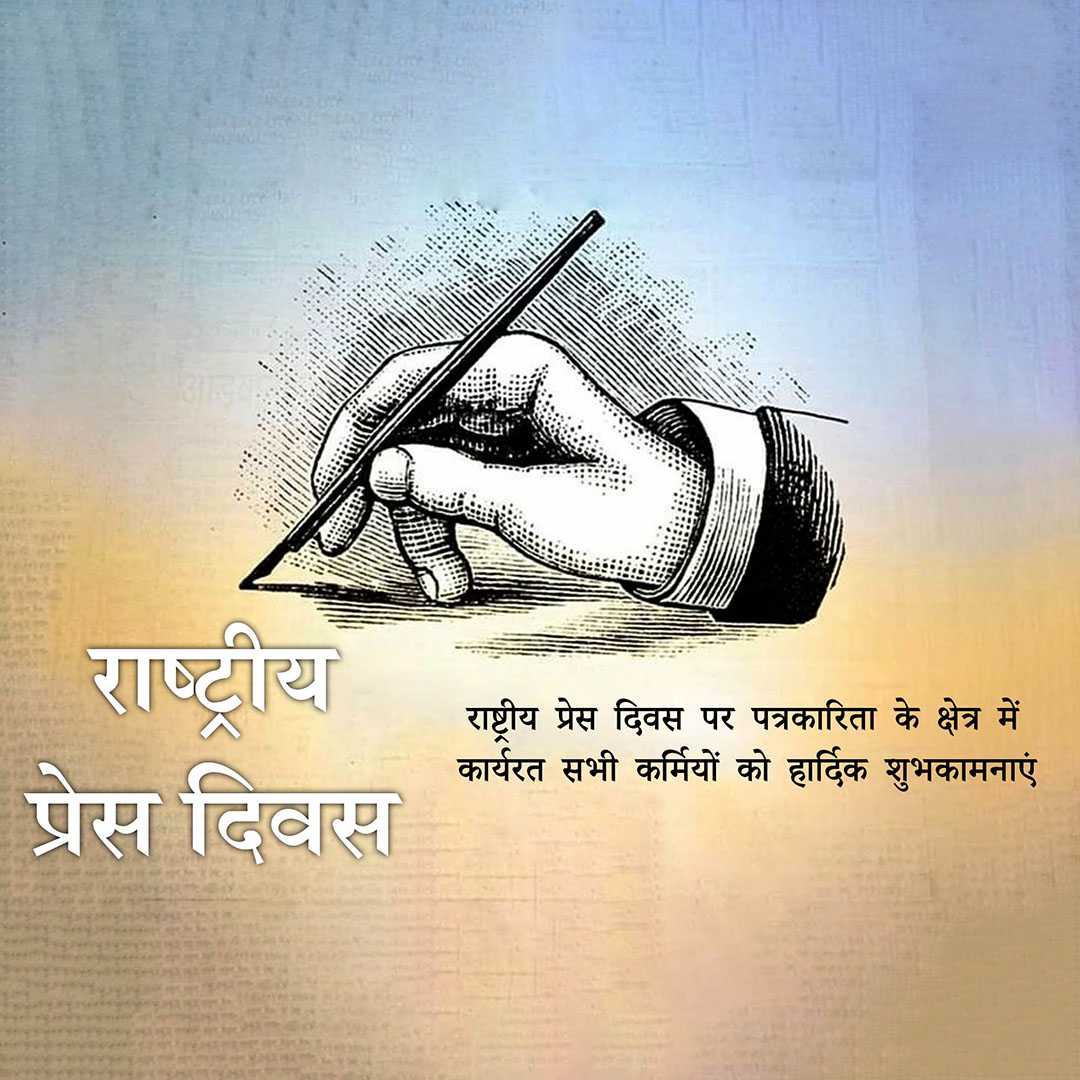 राष्ट्रीय
प्रेस दिवस
राष्ट्रीय प्रेस दिवस पर पत्रकारिता के क्षेत्र में
कार्यरत सभी कर्मियों को हार्दिक शुभकामनाएं